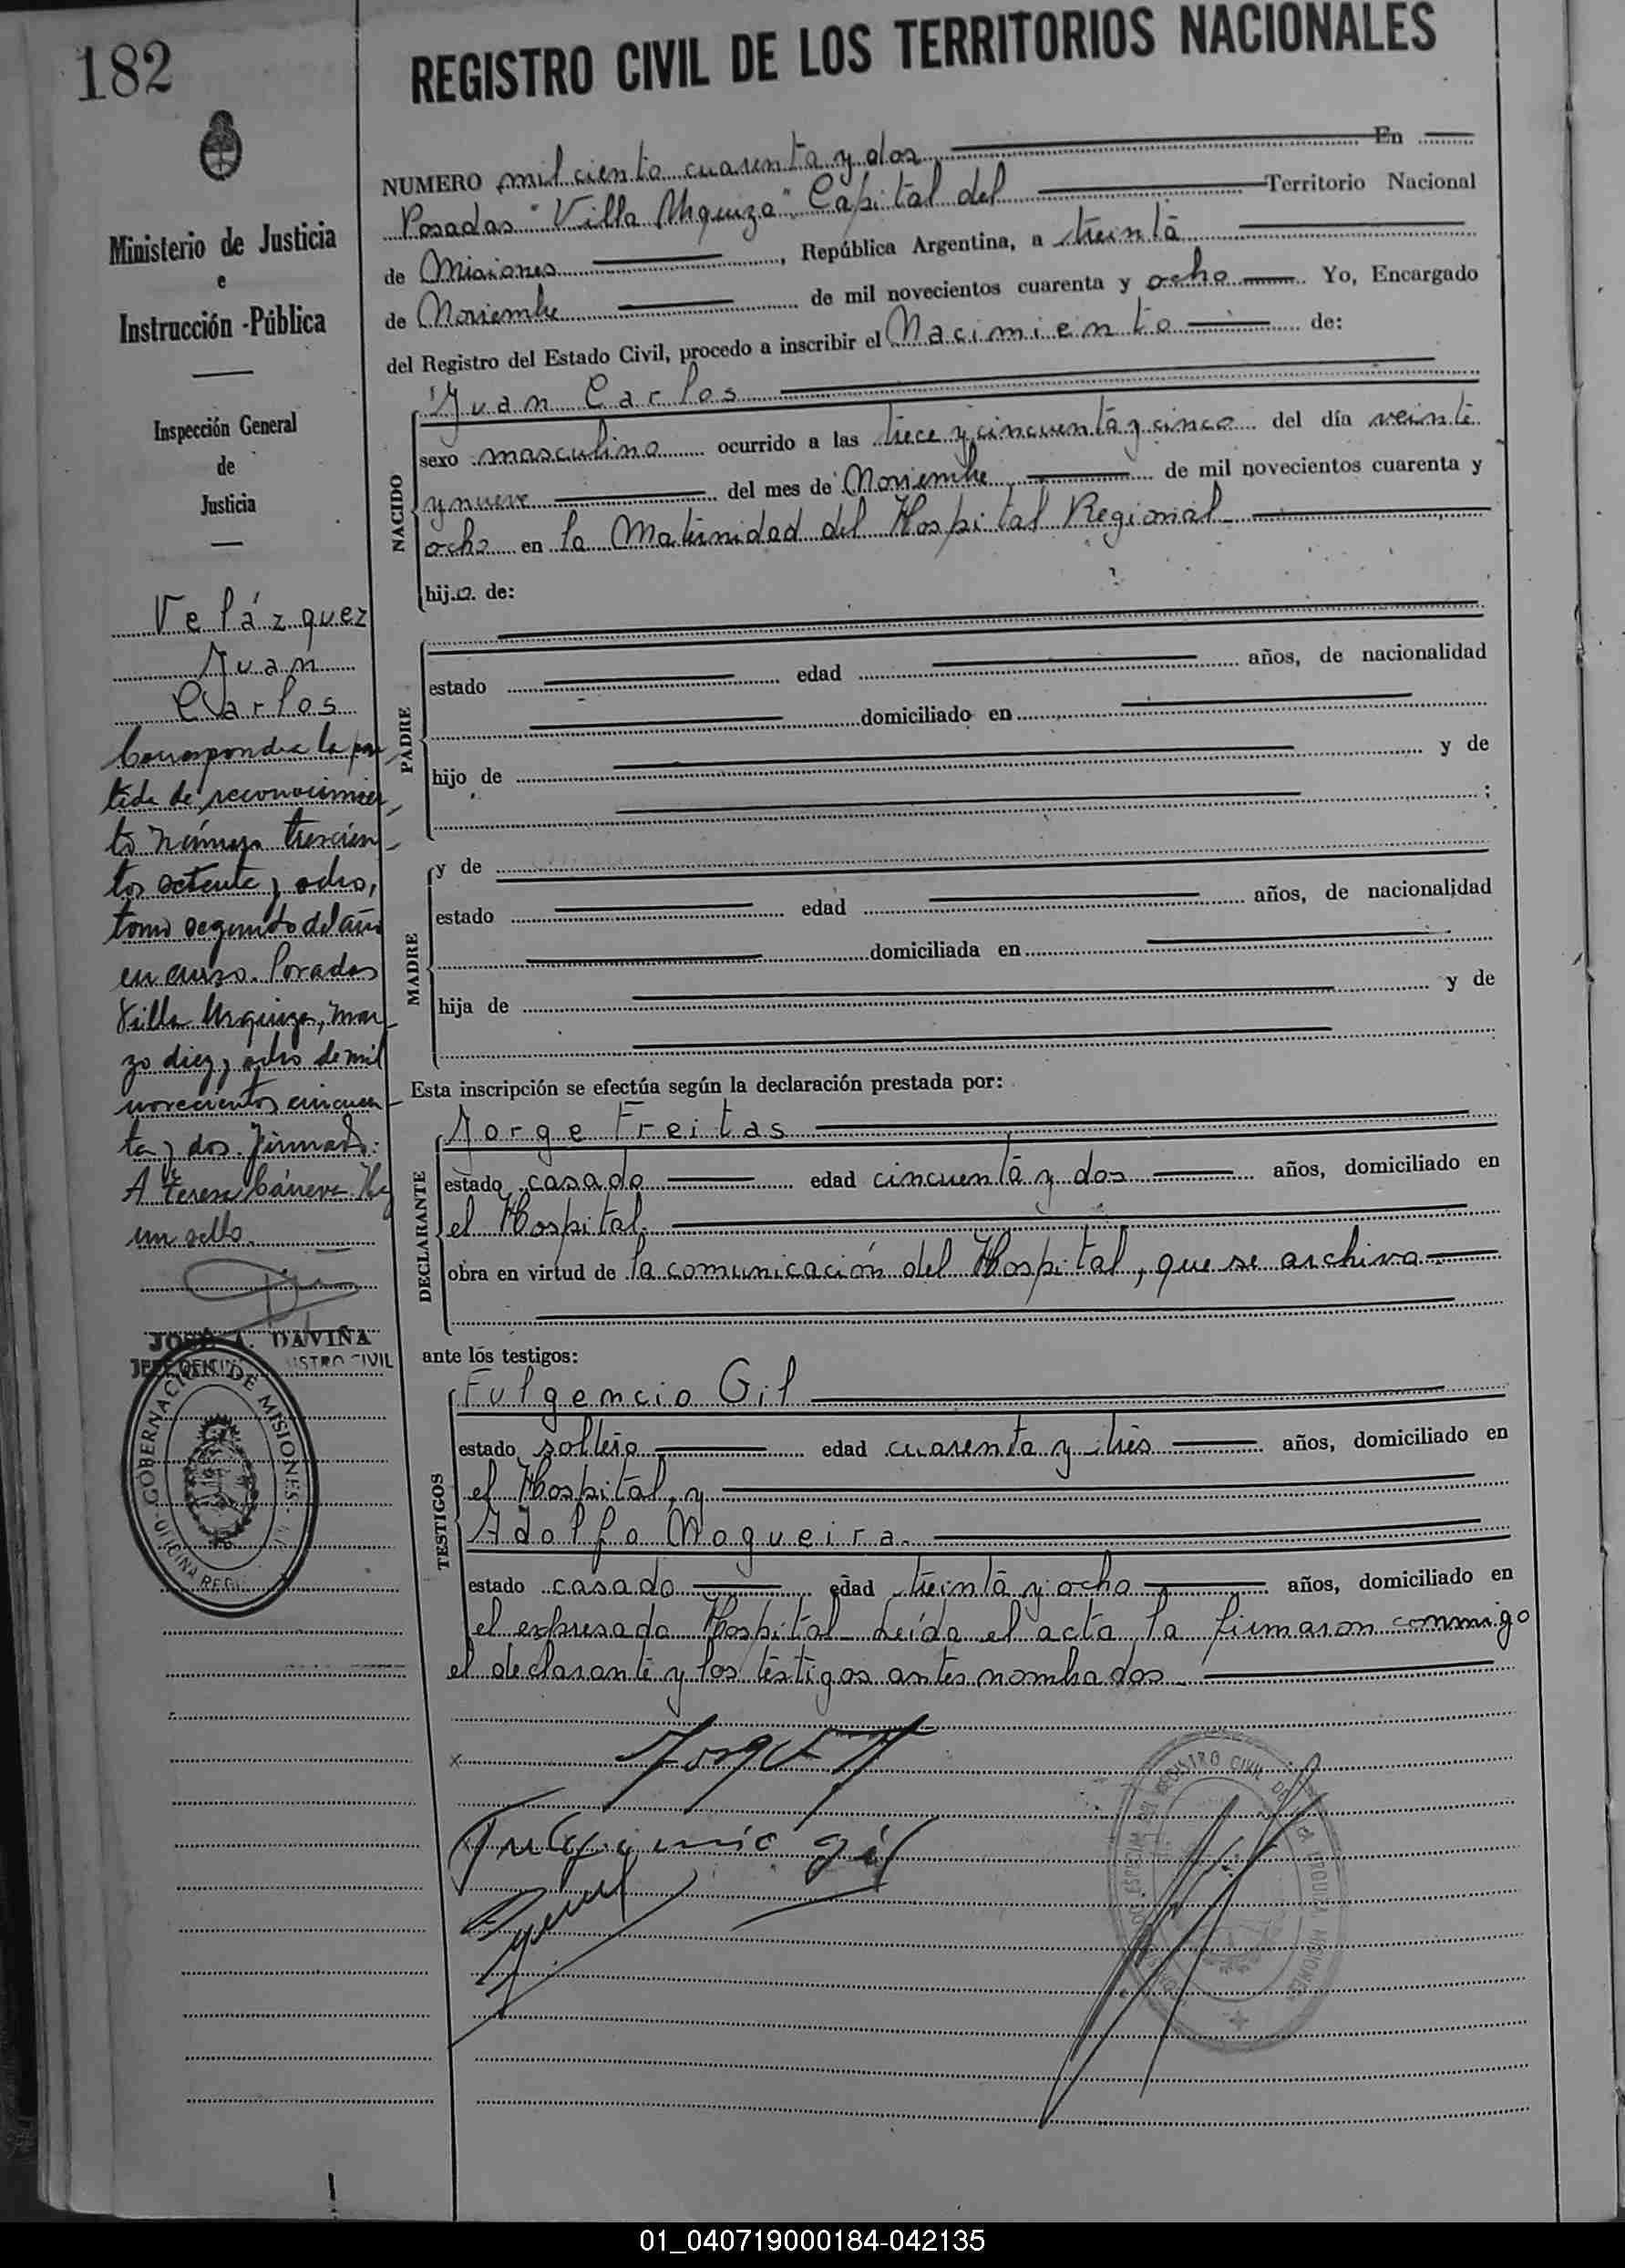 182
REGISTRO CIVIL DE LOS TERRITORIOS NACIONALES
Ministerio de Justicia
e
Instrucción -Pública
Inspección General
de
Justicia
Velázquez
Juan
Carlos
Corresponde la par
tida de reconocimien
to número trescien
tos setenta y ocho,
tomo segundo del año
en curso. Posadas
Villa Urquiza, mar
zo diez y ocho de mil
novecientos cincuen
ta y dos. Firmado:
A Teresa Hay
un sello.
JOSÉ A. DAVIÑA
JEFE OFICINA REGISTRO CIVIL
GOBERNACION DE MISIONES
OFICINA REGI
NUMERO mil ciento cuarenta y dos En
Posadas "Villa Urquiza" Capital del Territorio Nacional
de Misiones, República Argentina, a treinta
de Noviembre de mil novecientos cuarenta y ocho Yo, Encargado
del Registro del Estado Civil, procedo a inscribir el Nacimiento de:
NACIDO
Juan Carlos
sexo masculino ocurrido a las trece y cincuenta y cinco del día veinte
y nueve del mes de Noviembre de mil novecientos cuarenta y
ocho en la Maternidad del Hospital Regional
hijo. de:
PADRE
estado edad años, de nacionalidad
domiciliado en
hijo de y de
;
MADRE
y de
estado edad años, de nacionalidad
domiciliada en
hija de y de
Esta inscripción se efectúa según la declaración prestada por:
DECLARANTE
Jorge Freitas
estado casado edad cincuenta y dos años, domiciliado en
el Hospital.
obra en virtud de la comunicación del Hospital, que se archiva
ante los testigos:
TESTIGOS
Fulgencio Gil
estado soltero edad cuarenta y tres años, domiciliado en
el Hospital, y
Adolfo Nogueira.
estado casado edad treinta y ocho años, domiciliado en
el expresado Hospital. Leída el acta, la firmaron conmigo
el declarante y los testigos antes nombrados.
Jorge F
Fulgencio Gil
REGISTRO CIVIL DE
URQUIZA MISIONES
01_040719000184-042135